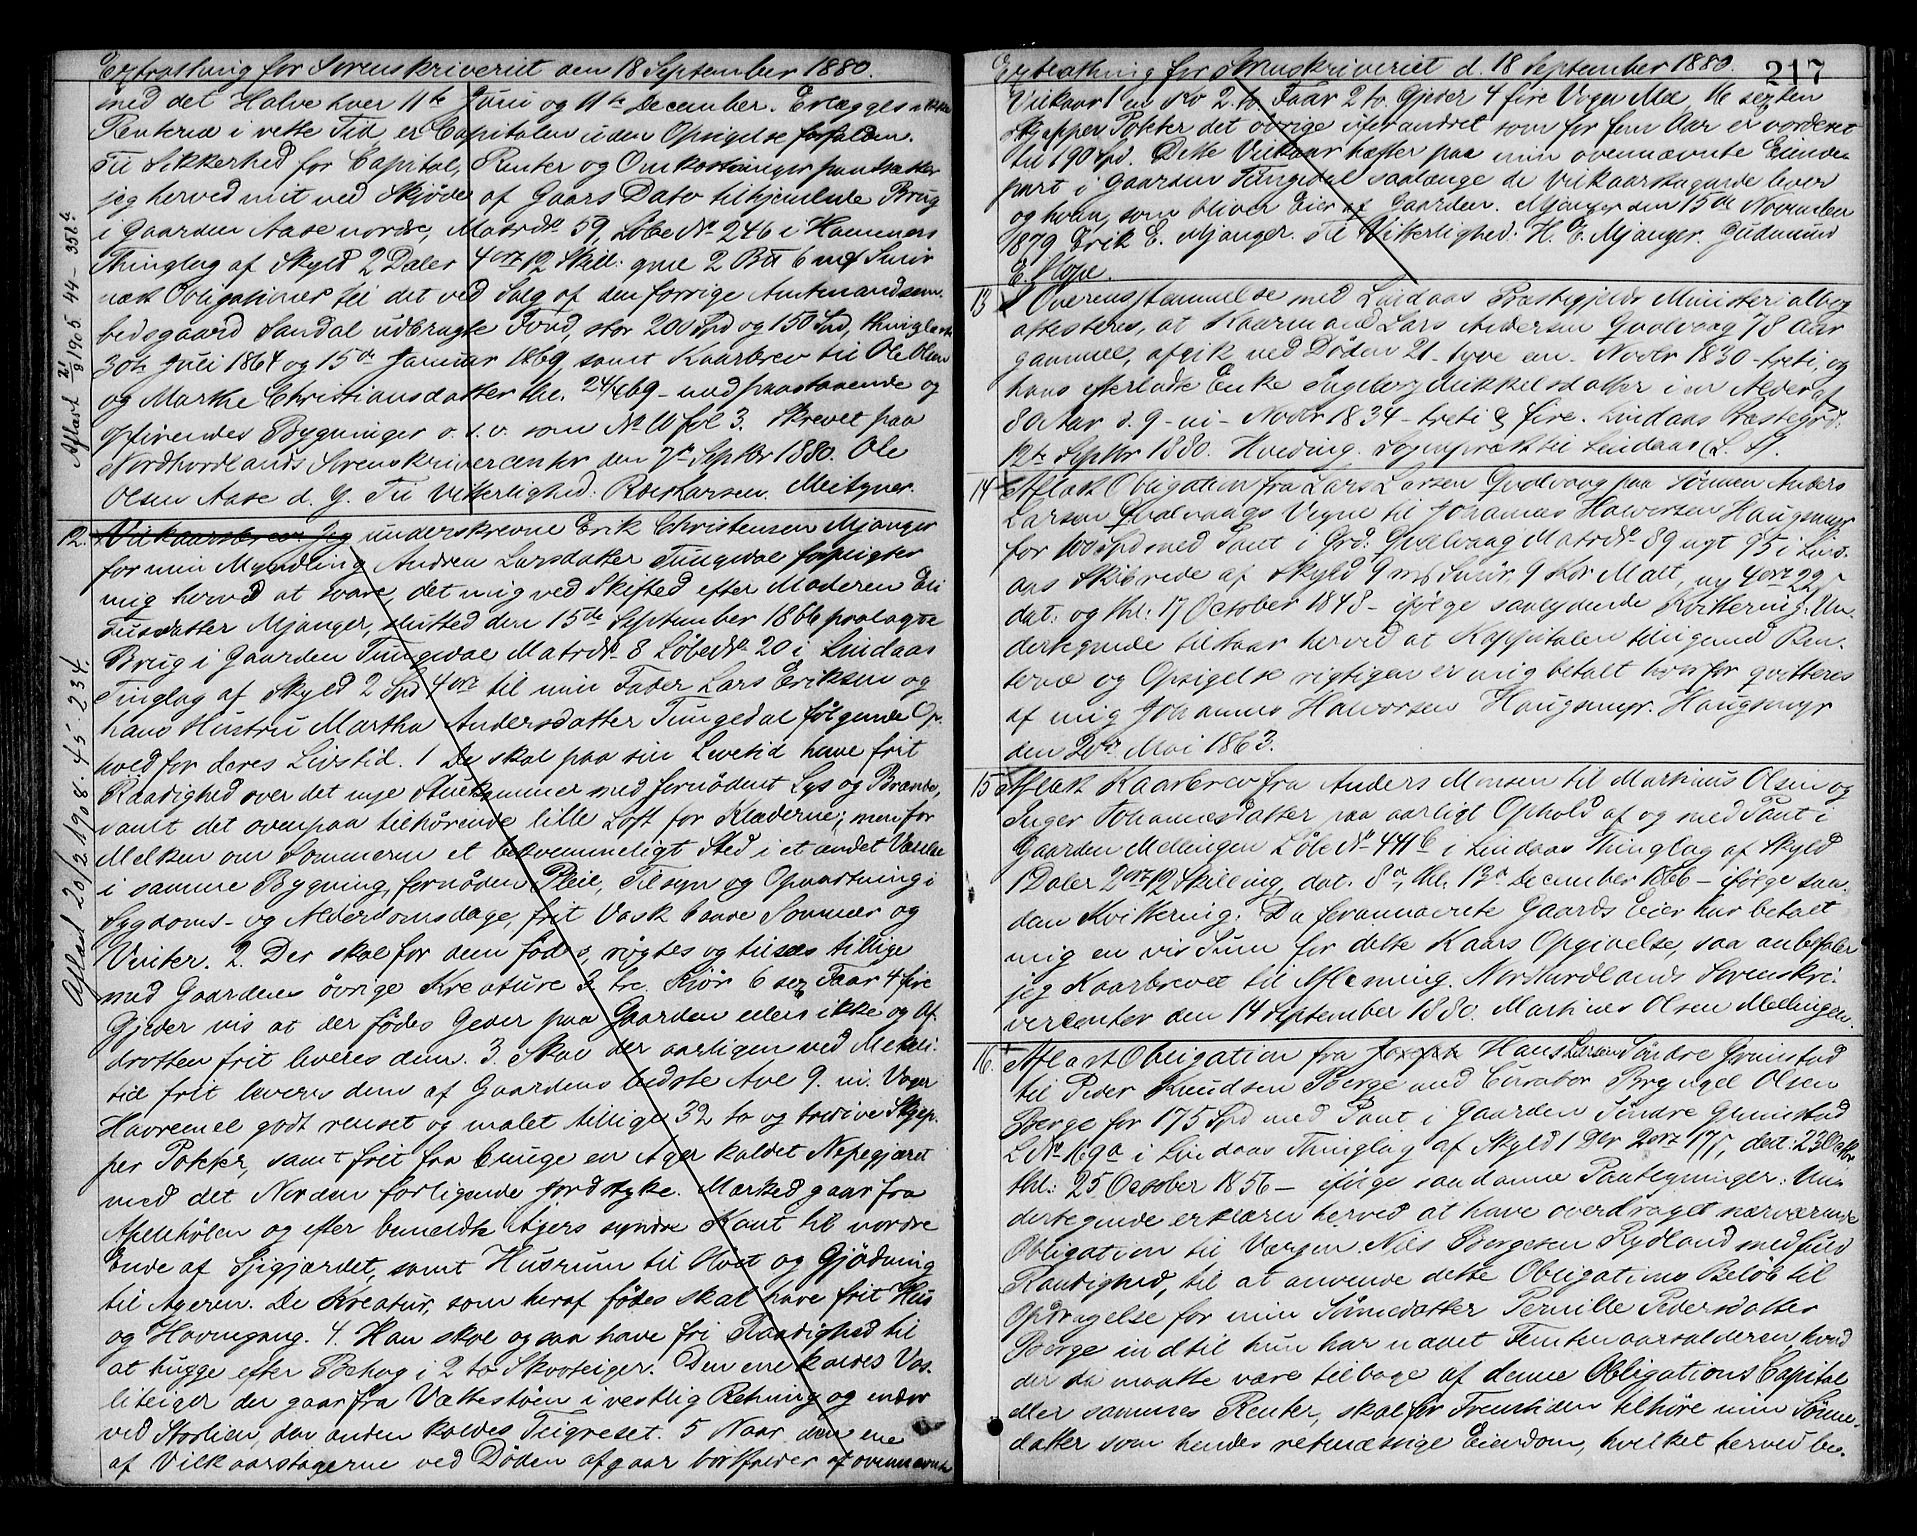 Extrathing for Sorenskriveriet den 18 September 1880.
med det Halve hver 11te Juni og 11te December. Erlægges ikke
Renterne i rette Tid er Capitalen uden Opsigelse forfalden.
Til Sikkerhed for Capital, Renter og Omkostninger pantsætter
jeg herved mit ved Skjøde af Gaars Dato tilhjemlede Brug
i Gaarden Aase nordre, Matr. No 59, Løbe No 246 i Hammers
Thinglag af Skyld 2 Daler 4 ort 12 Skill: gml 2 Btt 6 mk Smør
næst Obligationer til det ved Salg af den forrige Amtmandsem-
bedsgaard Sandal udbragte Fond, stor 200 Spd og 150 Spd, thinglæste
30te Juli 1864 og 15de Januar 1869, samt Kaarbrev til Ole Olsen
og Marthe Christiansdatter thl. 24/6 69 - med paastaaende og
Aflæst 21/9 1905 44 - 351 b
Nordhordlands Sorenskrivercontor den 7de Septbr 1880. Ole
Olsen Aase d. Y. Til Vitterlighed: Meltzner.
12. Vilkaarsbrev Jeg underskrevne Erik Christensen Mjanger
for min Myndling Andrea Larsdatter Tungedal forpligter
mig herved at svare, det mig ved Skiftet efter Moderen Eli
Mjanger, slutted den 15de September 1866 paalagte
Brug i Gaarden Tungedal Matr No 8 Løbe No 20 i Lindaas
Tinglag af Skyld 2 Spd 4 ort til min Fader Lars Eriksen og
hans Hustru Martha Andersdatter Tungedal følgende Op-
hold for deres Livstid. 1 De skal paa sin Levetid have frit
Raadighed over det nye med fornødent Lys og Brænde,
samt det ovenpaa tilhørende lille Loft for Klæderne; men for
Melken om Sommeren et bekvemmeligt Sted i et andet Værelse
i samme Bygning, fornøden Pleie, Tilsyn og Opvartning i
Sygdoms- og Alderdomsdage, frit Vask baare Sommer og
Vinter. 2. Der skal for dem fødes, røgtes og tilsees tillige
med Gaardens øvrige Kreature 3 tre Kjør 6 sex Faar 4 fire
Gjeder vis at der fødes Geder paa Gaarden ellers ikke og Af-
drotten frit leveres dem. 3. Skal der aarligen ved Mekeli-
tid frit leveres dem af Gaardens bedste Avl 9. ni. Voger
Havremel godt renset og malet tillige 32 to og tredive Skjep-
per Poteter, samt frit fra bruge en Ager kaldet Nepegjæret
med det Norden forliggende Jordstykke. Marked gaar fra
Apelehølen og efter bemeldte Agers syndre Kant til nordre
Ende af Sjigjærdet, samt Husrum til Høst og Gjødning
til Ageren. De Kreatur, som heraf fødes skal have frit Hus
og Havnegang. 4. Han skal ogsaa have fri Raadighed til
at hugge efter Behag i 2 to Skovteiger. Den ene kaldes Vas-
liteiger der gaar fra Vættestøen i vestlig Retning og ender
ved Storlien, den anden kaldes Teigreset. 5 Naar den ene
af Vilkaarstagerne ved Døden afgaar bortfalder af ovennævnte
Aflæst 20/2 1908. 45 - 234.
Extrathing for Sorenskriveriet d. 18 September 1880.
217
Vilkaar 1 en Ko 2. to Faar 2 to Gjeder 4 fire Voger Mel 16 sexten
Skjæpper Poteter det øvrige uforandret som for fem Aar er vorderet
til 190 Spd. Dette Vilkaar hæfter paa min ovennævnte Eiende-
part i Gaarden Tungedal saalænge de Vilkaarstagende lever
og hvem, som bliver Eier af Gaarden. Mjanger den 15de November
1879 Erik E. Mjanger. Til Vitterlighed: H. E. Mjanger. Gudmund
E. Hope.
13 I Overensstemmelse med Lindaas Præstegjelds Ministerialbog
attesteres, at Kaarmand Lars Andersen Qvalvaag 78 Aar
gammel, afgik ved Døden 21 - tyve en - Novbr 1830 - treti, og
hans efterladte Enke Ingeborg Mikkelsdatter i en Alder af
80 Aar d. 9 - ni - Novbr 1834 - treti & fire. Lindaas Præstegrd.
12te Septbr 1880. Hvoding. Sogneprest til Lindaas (L. S.)
14 Aflæst Obligation fra Lars Larsen Qvalvaag paa Sønnen Anders
Larsen Qvalvaags Vegne til Johannes Halvorsen Haugsmyr
for 100 Spd med Pant i Grd: Qvalvaag Matr No 89 nyt 95 i Lind-
aas Skibrede af Skyld 9 mk Smør, 9 Kor Malt, ny 4 ort 22 s
dat: og thl: 17 October 1848 - ifølge saalydende Kvittering: Un-
dertegnede tilstaar herved at Kappitalen tilligemed Ren-
terne og Opsigelse rigtigen er mig betalt hvorfor qvitteres
af mig Johannes Halvorsen Haugsmyr. Haugsmyr
den 20de Mai 1863.
15 Aflæst Kaarbrev fra Anders Monsen til Martinus Olsen og
Inger Johannesdatter paa aarligt Ophold af og med Pant i
Gaarden Mellingen Løbe No 441 b i Lindaas Thinglag af Skyld
1 Daler 2 ort 12 Skilling, dat. 8de, thl. 13de December 1866 - ifølge saa-
dan Kvittering: Da forannævnte Gaards Eier har betalt
mig en vis Sum for dette Kaars Opgivelse, saa anbefaler
jeg Kaarbrevet til Aflæsning. Nordhordlands Sorenskri-
vercontor den 14 September 1880. Martines Olsen Mellingen.
16. Aflæst Obligation fra Joseph Hans Larsen Søndre Grimstad
til Peder Knudsen Berge med Curator Bryngel Olsen
Berge for 175 Spd med Pant i Gaarden Søndre Grimstad
L No 169 a i Lindaas Thinglag af Skyld 1 Dlr 2 ort 17 s, dat: 23 Octbr
thl: 25 October 1856 - ifølge saadanne Paategninger: Un-
dertegnede erklærer herved at have overdraget nærværende
Obligation til Værgen Nils Børgesen Rydland med fuld
Raadighed, til at anvende dette Obligations Beløb til
Opdragelse for min Sønnedatter Pernille Pedersdatter
Berge indtil hun har naaet Femten aarsalderen hvad
der da maatte være tilbage af denne Obligations Capital
eller sammes Renter, skal for Fremtiden tilhøre min Sønne-
datter som hendes retmæssige Eiendom, hvilket herved be-